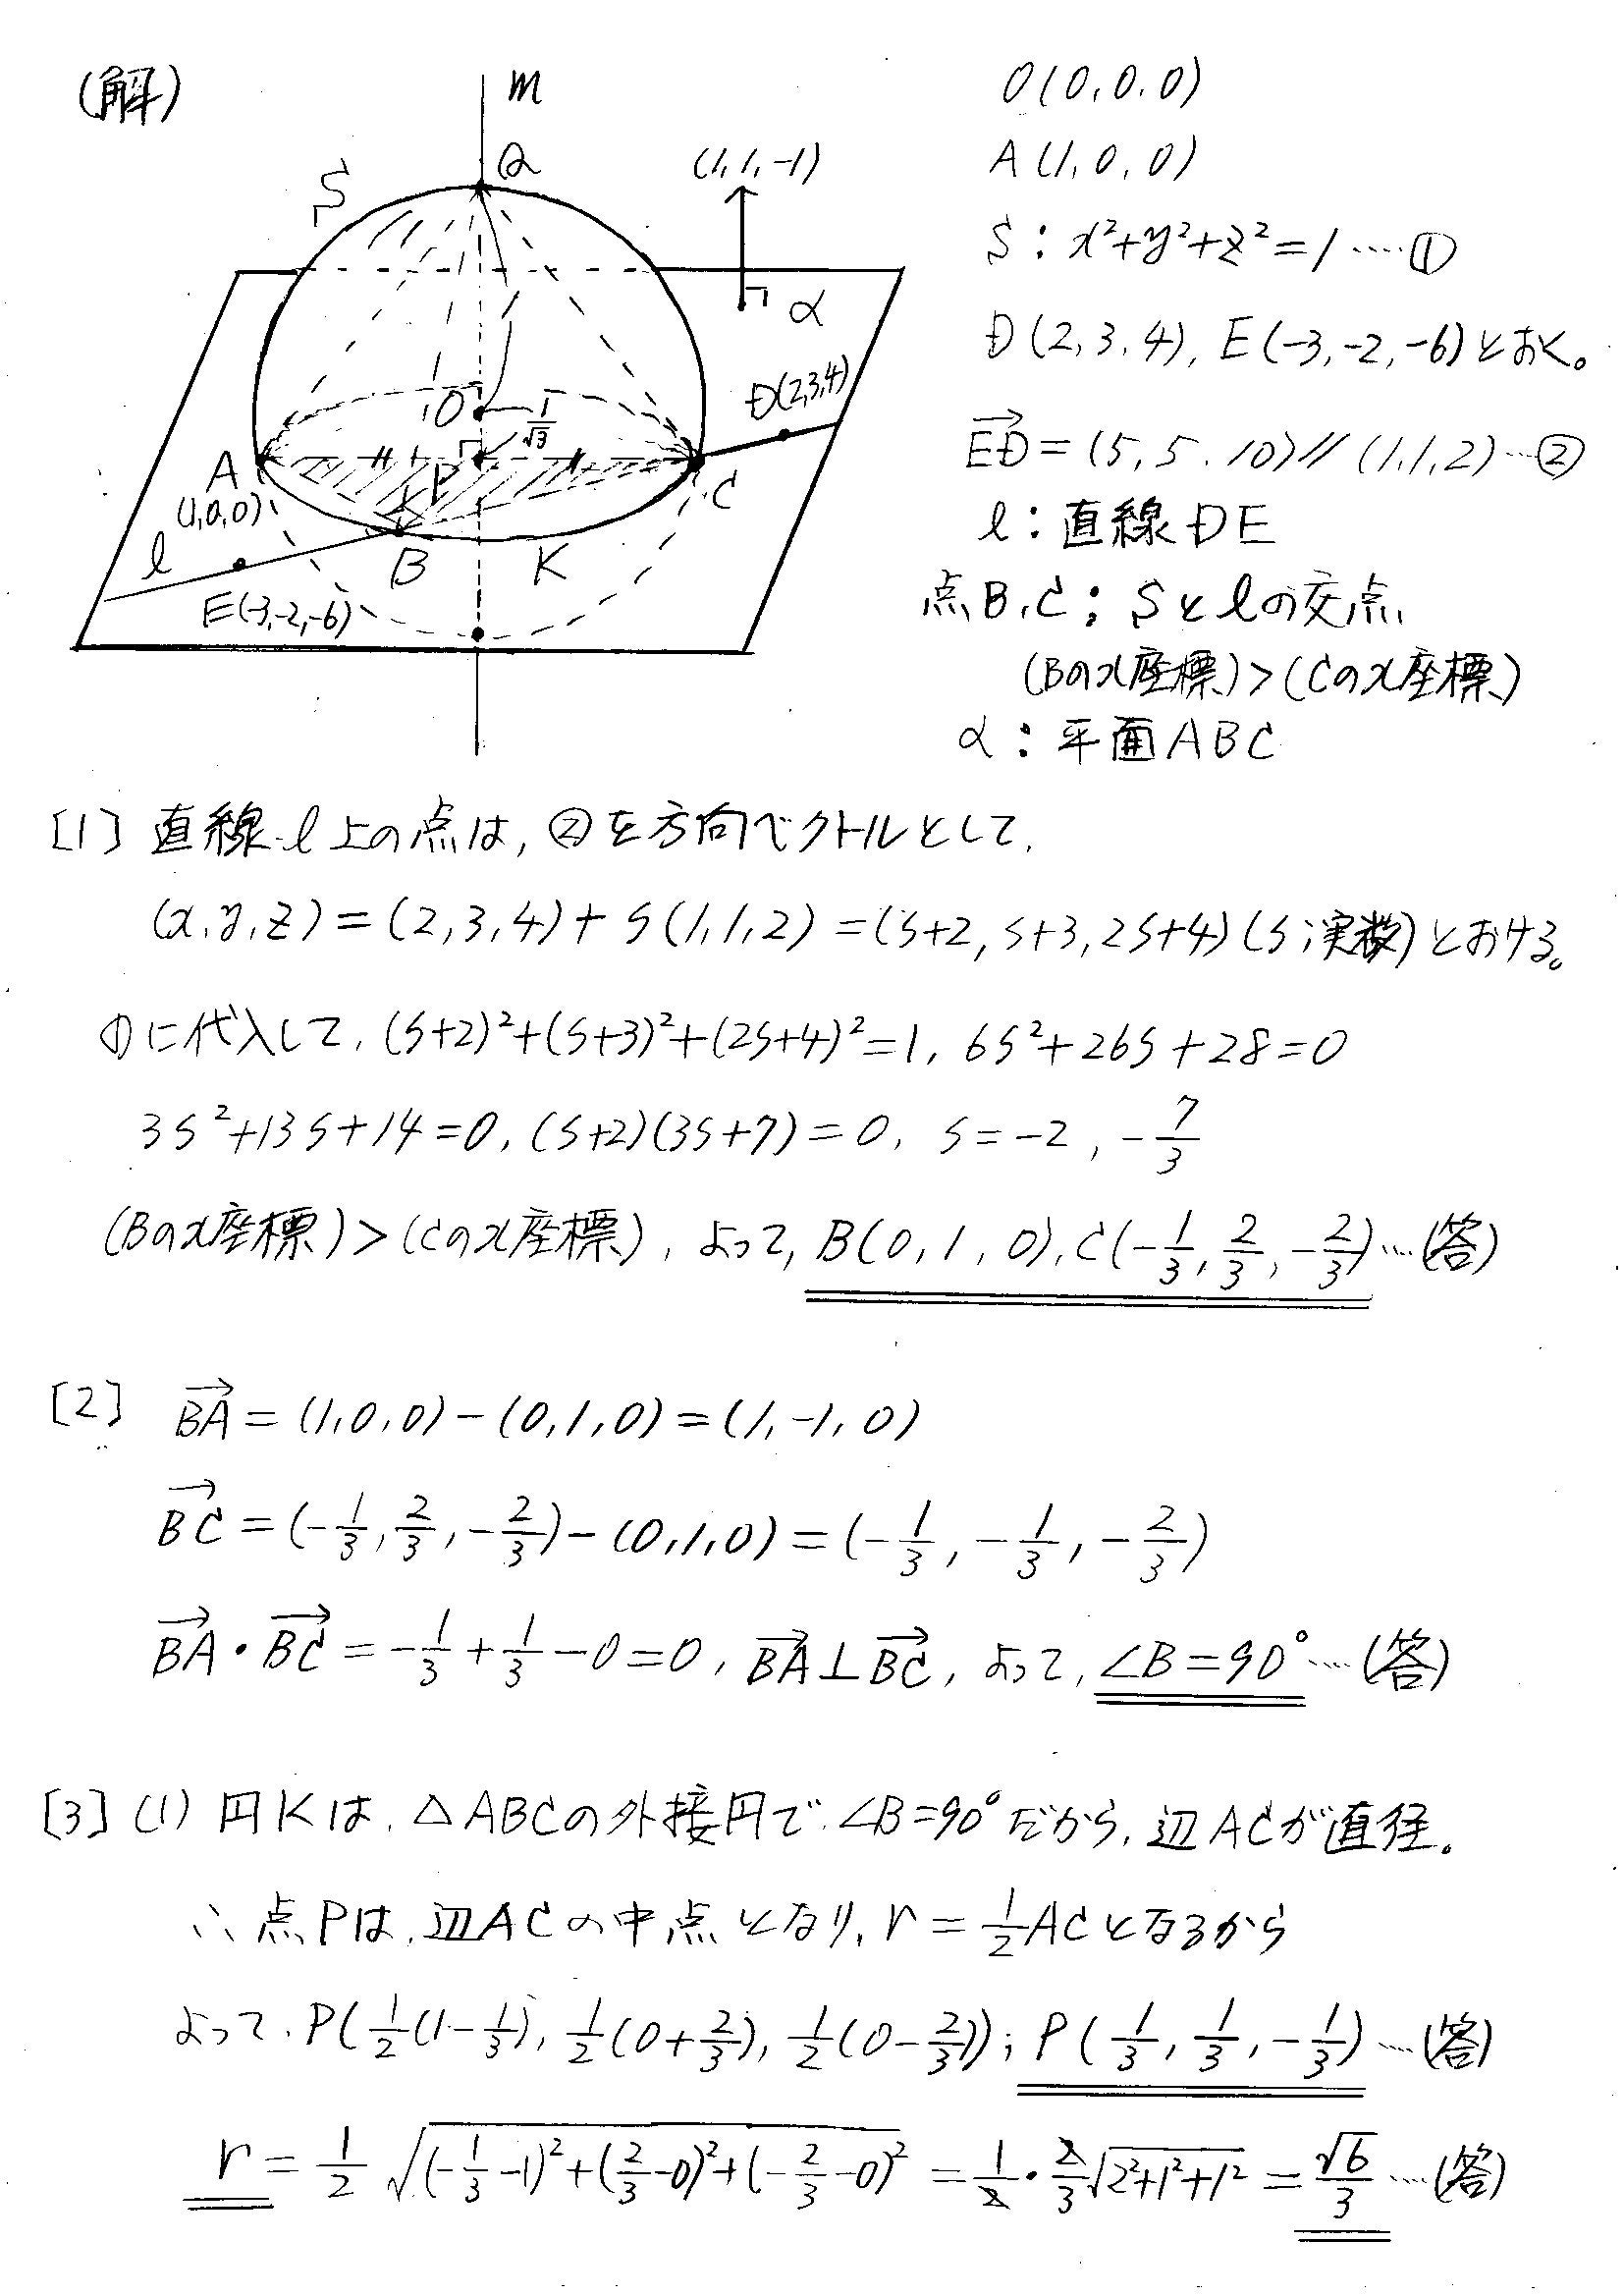 (解)
m
Q
S
(1,1,-1)
α
O
1/√3
D(2,3,4)
A
(1,0,0)
P
C
l
B
K
E(-3,-2,-6)
O(0,0,0)
A(1,0,0)
S:x²+y²+z²=1 ……①
D(2,3,4), E(-3,-2,-6)とおく。
→ED=(5,5,10)∥(1,1,2)…②
l:直線DE
点B,C;Sとlの交点
(Bのx座標)>(Cのx座標)
α:平面ABC
[1] 直線l上の点は,②を方向ベクトルとして,
(x,y,z)=(2,3,4)+s(1,1,2)=(s+2,s+3,2s+4)(s;実数)とおける。
①に代入して,(s+2)²+(s+3)²+(2s+4)²=1, 6s²+26s+28=0
3s²+13s+14=0,(s+2)(3s+7)=0, s=-2,-7/3
(Bのx座標)>(Cのx座標),よって,B(0,1,0),C(-1/3,2/3,-2/3)…(答)
[2] →BA=(1,0,0)-(0,1,0)=(1,-1,0)
→BC=(-1/3,2/3,-2/3)-(0,1,0)=(-1/3,-1/3,-2/3)
→BA・→BC=-1/3+1/3-0=0, →BA⊥→BC,よって,∠B=90°…(答)
[3](1)円Kは,△ABCの外接円で,∠B=90°だから,辺ACが直径。
∴点Pは,辺ACの中点となり,r=1/2ACとなるから
よって,P(1/2(1-1/3),1/2(0+2/3),1/2(0-2/3));P(1/3,1/3,-1/3)…(答)
r=1/2√((-1/3-1)²+(2/3-0)²+(-2/3-0)²)=1/2・2/3√(2²+1²+1²)=√6/3…(答)